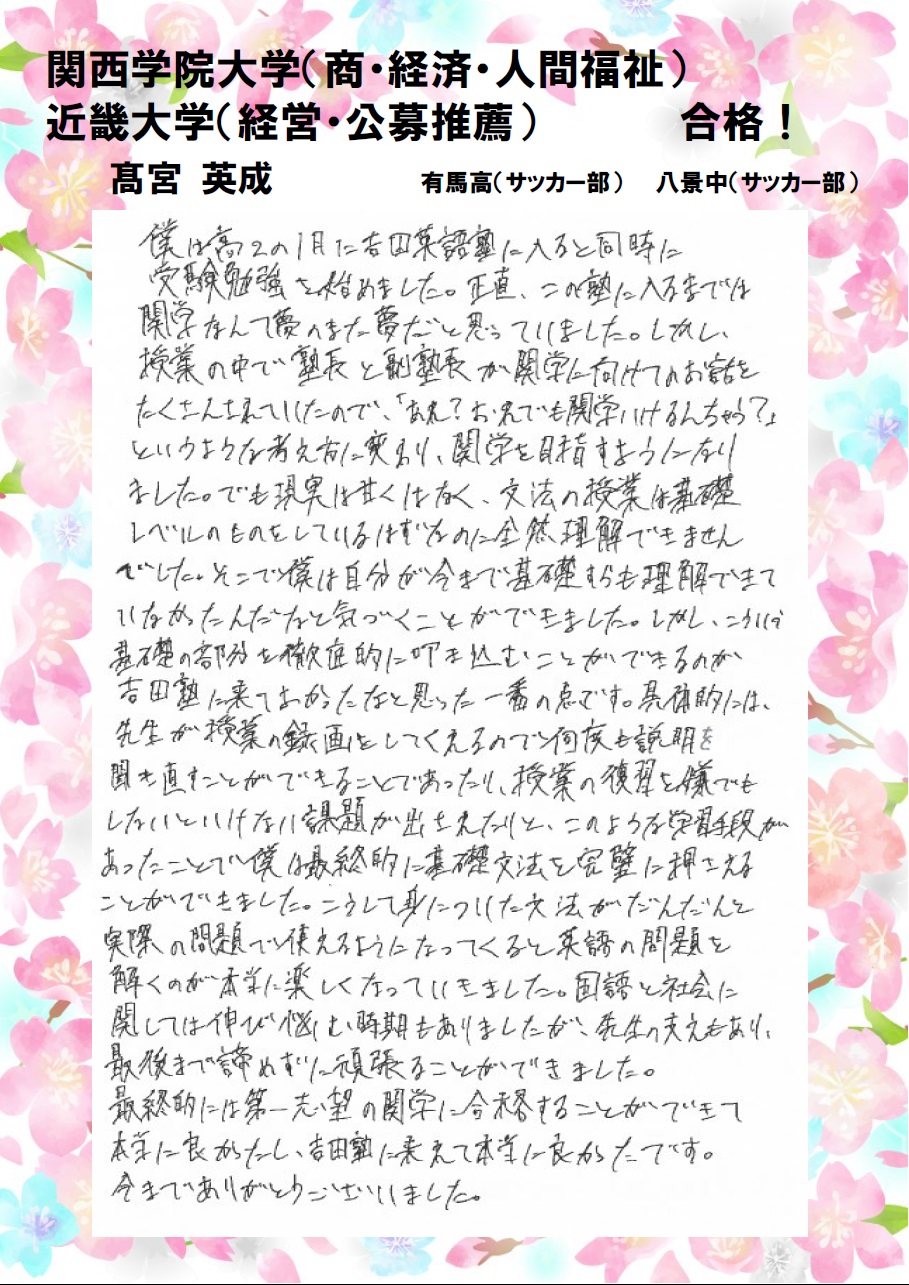 関西学院大学(商・経済・人間福祉)
近畿大学(経営・公募推薦)　合格！
髙宮 英成　有馬高(サッカー部)　八景中(サッカー部)
僕は高2の1月に吉田英語塾に入ると同時に
受験勉強を始めました。正直、この塾に入るまでは
関学なんて夢のまた夢だと思っていました。しかし、
授業の中で塾長と副塾長が関学に向けてのお話を
たくさんされていたので、「あれ？おれでも関学いけるんちゃう？」
というような考え方に変わり、関学を目指すようになり
ました。でも現実は甘くはなく、文法の授業は基礎
レベルのものをしているはずなのに全然理解できません
でした。そこで僕は自分が今まで基礎すらも理解できて
いなかったんだなと気づくことができました。しかし、こういう
基礎の部分を徹底的に叩き込むことができるのが
吉田塾に来てよかったなと思った一番の点です。具体的には、
先生が授業の録画をしてくれるので何度も説明を
聞き直すことができることであったり、授業の復習を嫌でも
しないといけない課題が出されたりと、このような学習手段が
あったことで僕は最終的に基礎文法を完璧に押さえる
ことができました。こうして身についた文法がだんだんと
実際の問題で使えるようになってくると英語の問題を
解くのが本当に楽しくなっていきました。国語と社会に
関しては伸び悩む時期もありましたが、先生の支えもあり、
最後まで諦めずに頑張ることができました。
最終的には第一志望の関学に合格することができて
本当に良かったし、吉田塾に来れて本当に良かったです。
今までありがとうございました。